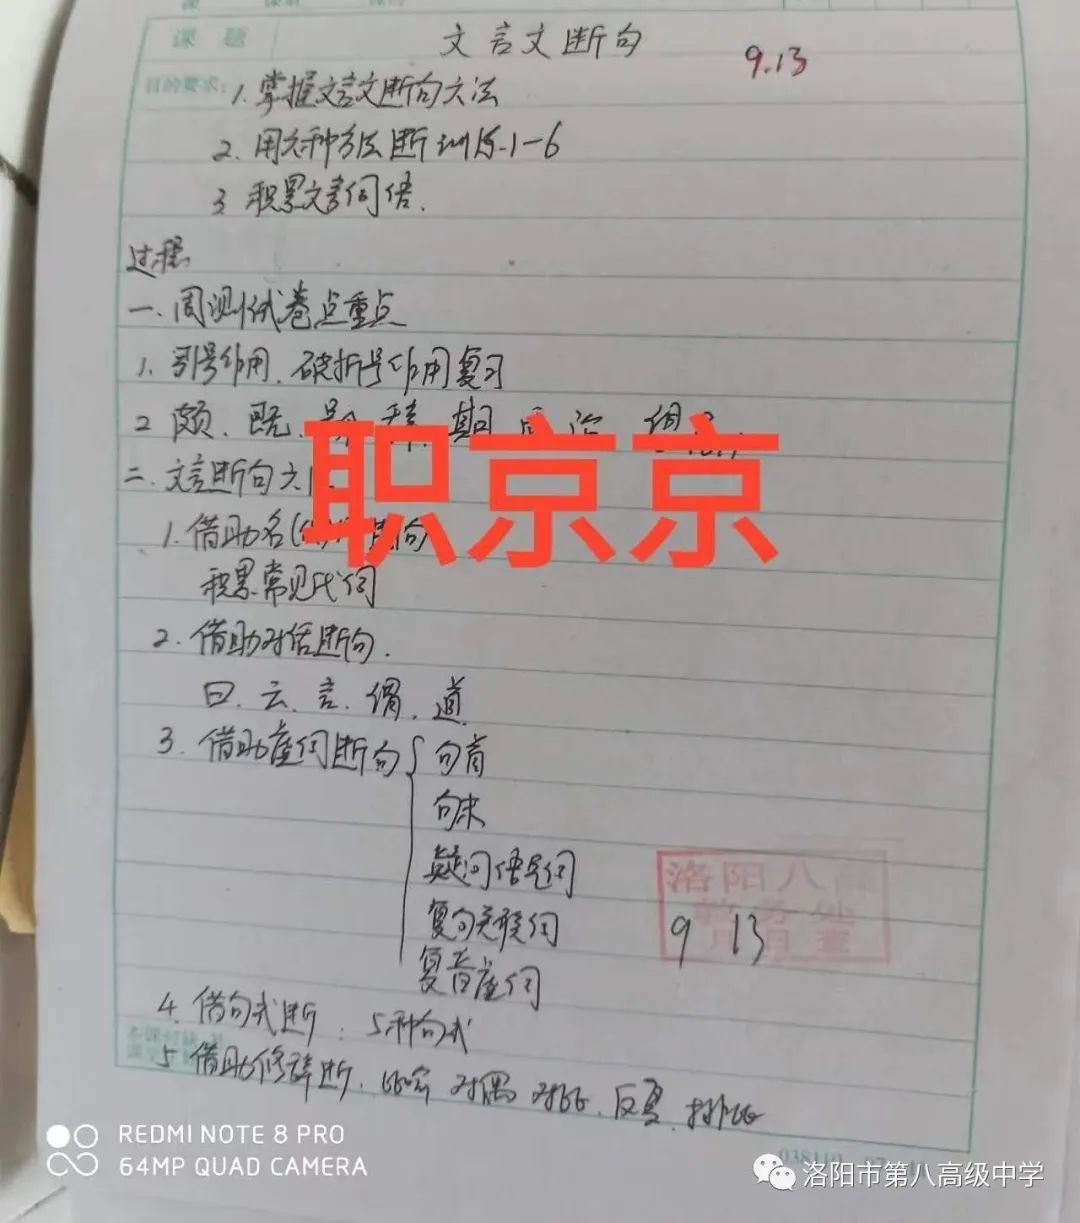 课题 文言文断句
9.13
目的要求: 1. 掌握文言文断句六法
2. 用六种方法断训练1-6
3 积累文言词语.
过程
一. 周测试卷点重点
1. 引号作用、破折号作用复习
2 颇、既、期
二. 文言断句六
1. 借助名(代)词
积累常见代词
2. 借助对话断句.
曰、云、言、谓、道
3. 借助虚词断句
句首
句末
疑问语气词
复句关联词
复音虚词
4. 借句式断: 5种句式
5 借助修辞断. 比喻 对偶 对比、反复、排比
职京京
洛阳八高
教务处
月日查
9 13
REDMI NOTE 8 PRO
64MP QUAD CAMERA
洛阳市第八高级中学